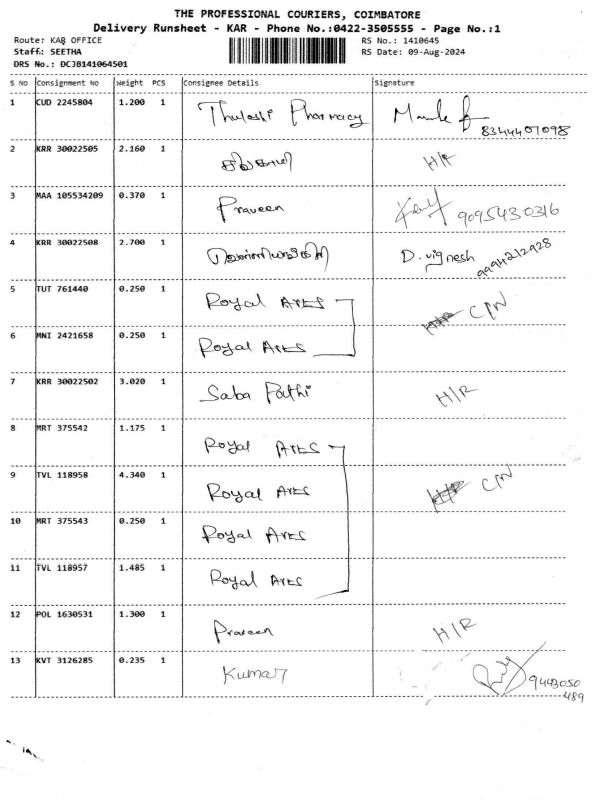 THE PROFESSIONAL COURIERS, COIMBATORE
Delivery Runsheet - KAR - Phone No.:0422-3505555 - Page No.:1
Route: KAR OFFICE RS No.: 1410645
Staff: SEETHA RS Date: 09-Aug-2024
DRS No.: DCJB141064501
S No Consignment No Weight PCS Consignee Details Signature
1 CUD 2245804 1.200 1 Thulasi Pharmacy
8344407098
2 KRR 30022505 2.160 1 H/R
3 MAA 105534209 0.370 1 Praveen 9095430316
4 KRR 30022508 2.700 1 D. vignesh 9994212928
5 TUT 761440 0.250 1 Royal Ares CPN
6 MNI 2421658 0.250 1 Royal Ares
7 KRR 30022502 3.020 1 Saba Pathi H/R
8 MRT 375542 1.175 1 Royal Ares
9 TVL 118958 4.340 1 Royal Ares CPN
10 MRT 375543 0.250 1 Royal Ares
11 TVL 118957 1.485 1 Royal Ares
12 POL 1630531 1.300 1 Praveen H/R
13 KVT 3126285 0.235 1 Kumar 9443050
489